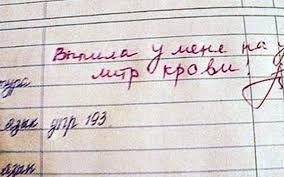 Выпила у мене на
литр крови!
тура
язык упр 193